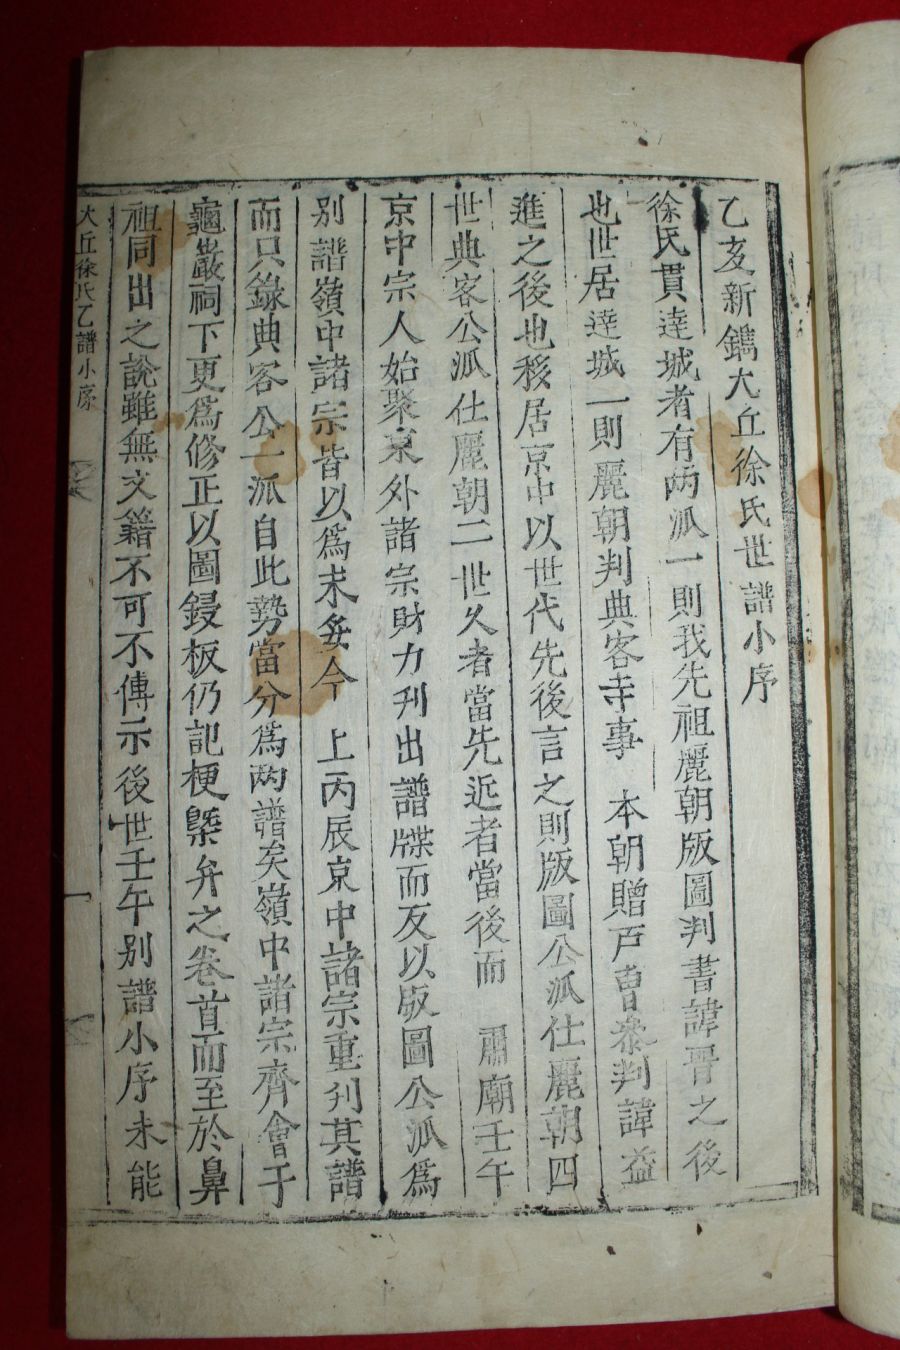 乙亥新鐫大丘徐氏世譜小序
徐氏貫達城者有两派一則我先祖麗朝版圖判書諱晋之後
也世居達城一則麗朝判典客寺事 本朝贈戸曹叅判諱益
進之後也移居京中以世代先後言之則版圖公派仕麗朝四
世典客公派仕麗朝二世久者當先近者當後而 肅廟壬午
京中宗人始聚京外諸宗財力刋出譜牒而反以版圖公派爲
别譜嶺中諸宗皆以爲未妥今 上丙辰京中諸宗重刋其譜
而只錄典客公一派自此勢當分爲两譜矣嶺中諸宗齊會于
龜巖祠下更爲修正以圖鋟板仍記梗槩弁之卷首而至於鼻
祖同出之說雖無文籍不可不傳示後世壬午别譜小序未能
大丘徐氏乙譜小序